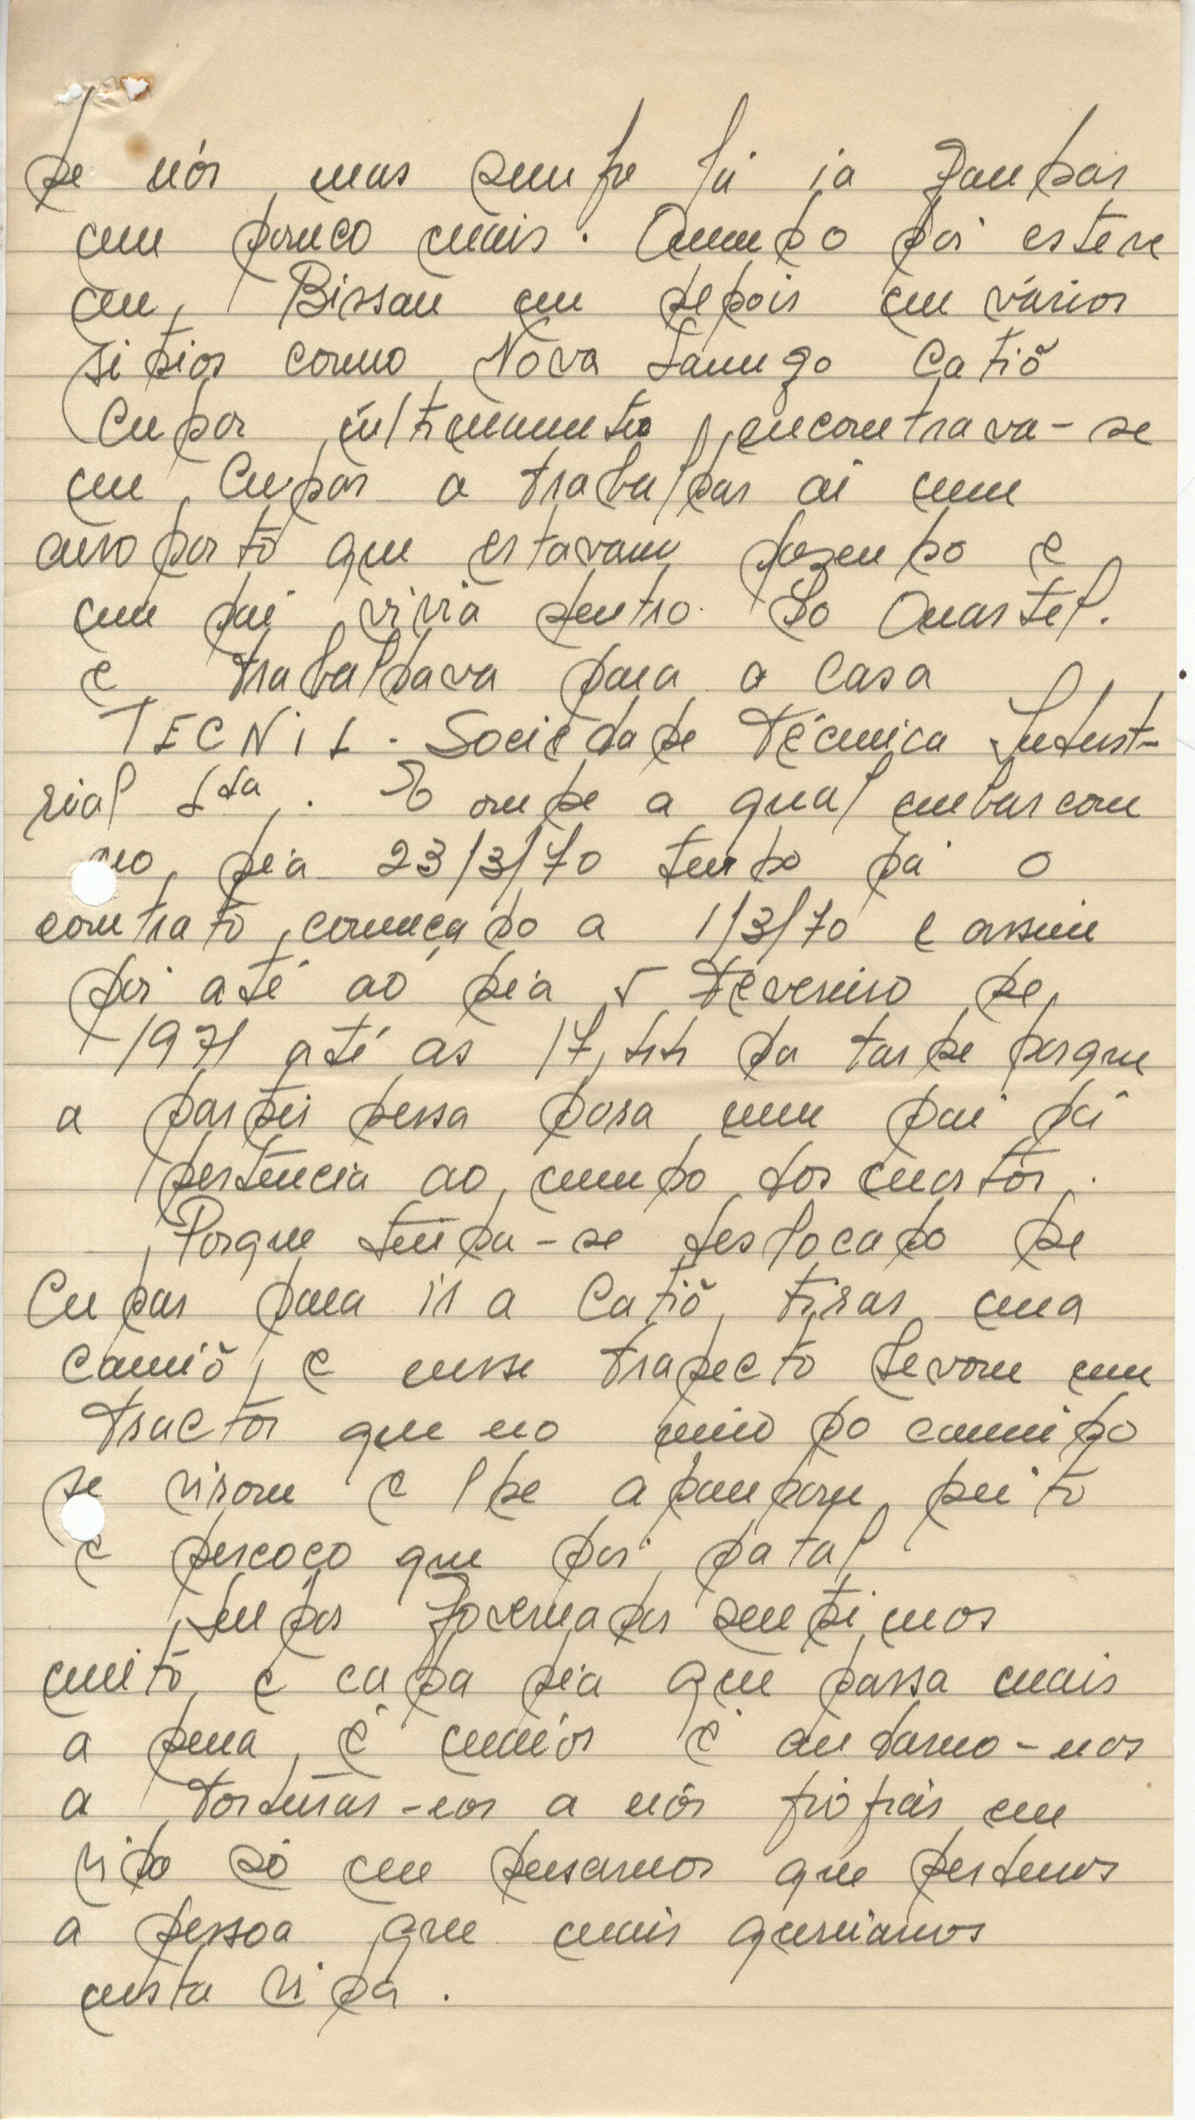 de nós mas sempre lá ia ganhar
um pouco mais. Quando foi esteve
em Bissau em depois em vários
sitios como Nova Lamego Catiõ
Cufar últimamente encontrava-se
em Cufar a trabalhar ai num
aeroporto que estavam fazendo e
meu pai vivia dentro do Quartel.
e trabalhava para a Casa
TECNIL. Sociedade Técnica Indust-
rial Lda. E onde a qual embarcou
no dia 23/3/70 tendo já o
contrato começado a 1/3/70 e assim
foi até ao dia 5 Fevereiro de
1971 até as 17, da tarde porque
a partir dessa hora meu pai já
pertencia ao mundo dos mortos.
Porque tinha-se deslocado de
Cufar para ir a Catiõ tirar uma
camiõ, e nesse trajecto levou um
tractor que no meio do caminho
se virou e lhe apanhou peito
e pescoço que foi fatal
Senhor Governador sentimos
muito, e cada dia que passa mais
a pena é maior é andarmo-nos
a torturar-nos a nós próprias em
vida só em pensarmos que perdemos
a pessoa que mais queriamos
nesta vida.